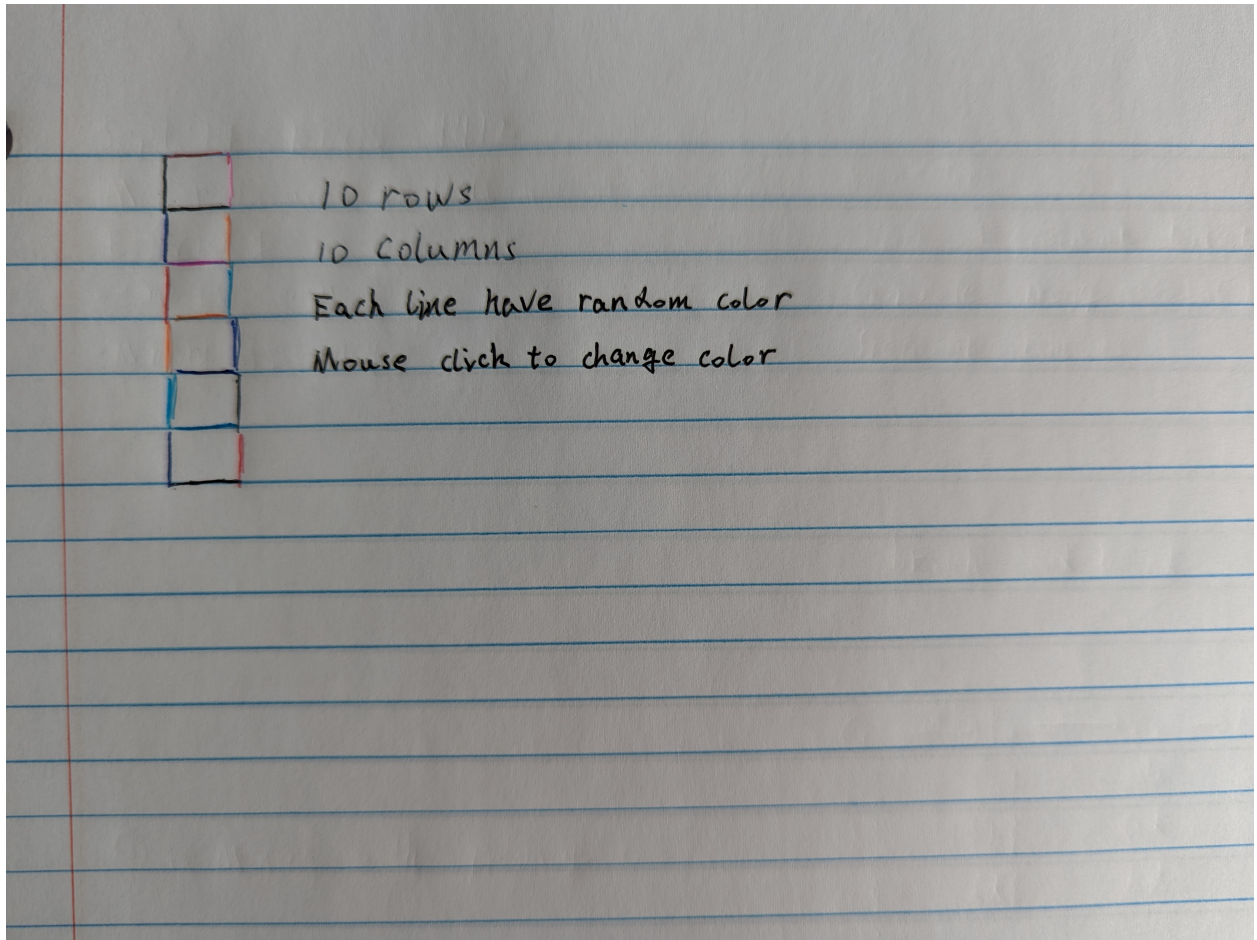 10 rows
10 columns
Each line have random color
Mouse click to change color